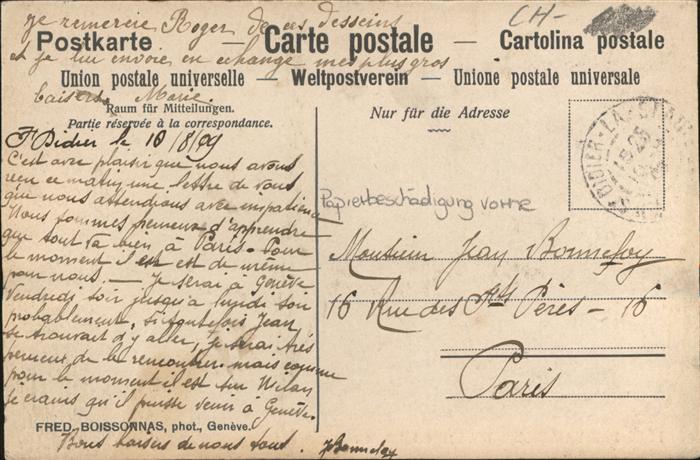 je remercie Roger de ces dessins
CH-
Postkarte — Carte postale — Cartolina postale
et je lui envoie en échange mes plus gros
Union postale universelle — Weltpostverein — Unione postale universale
baisers. Marie.
Raum für Mitteilungen.
Partie réservée à la correspondance.
Nur für die Adresse
St Didier le 10/8/09
C'est avec plaisir que nous avons
reçu ce matin une lettre de vous
que nous attendions avec impatience
Nous sommes heureux d'apprendre
que tout va bien à Paris. Pour
le moment il en est de même
pour nous. — Je serai à Genève
Vendredi soir jusqu'à lundi soir
probablement. Si toutefois Jean
se trouvait d'y aller, je serai très
heureux de le rencontrer. mais comme
pour le moment il est sur Milan
je crains qu'il puisse venir à Genève.
FRED. BOISSONNAS, phot., Genève.
Bons baisers de nous tous. JBonnefoy
Papierbeschädigung vorne
Monsieur Jean Bonnefoy
16 Rue des Sts Pères - 16
Paris
ST DIDIER-LA-
15 25